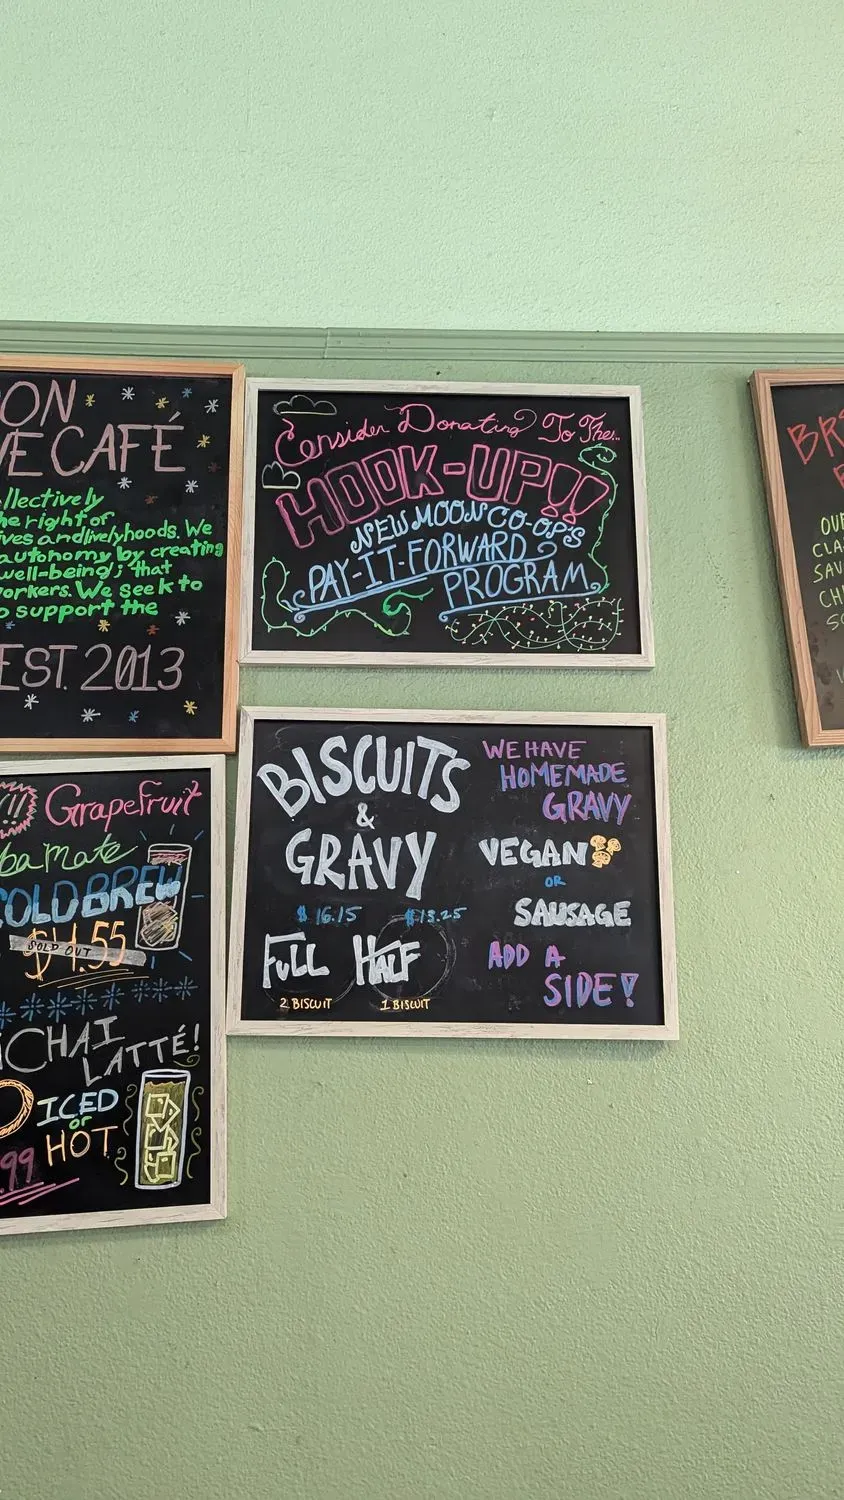 ON
VE CAFÉ
llectively
he right of
ives and livelyhoods. We
autonomy by creating
well-being; that
orkers. We seek to
o support the
EST. 2013
Consider Donating To The...
HOOK-UP!!
NEW MOON CO-OP'S
PAY-IT-FORWARD
PROGRAM
!!!
Grapefruit
ba Mate
COLD BREW
SOLD OUT
$4.55
CHAI
LATTÉ!
ICED
or
HOT
.99
BISCUITS
&
GRAVY
$16.15 $13.25
FULL HALF
2 BISCUIT 1 BISCUIT
WE HAVE
HOMEMADE
GRAVY
VEGAN
OR
SAUSAGE
ADD A
SIDE!
BR
OU
CLA
SAV
CH